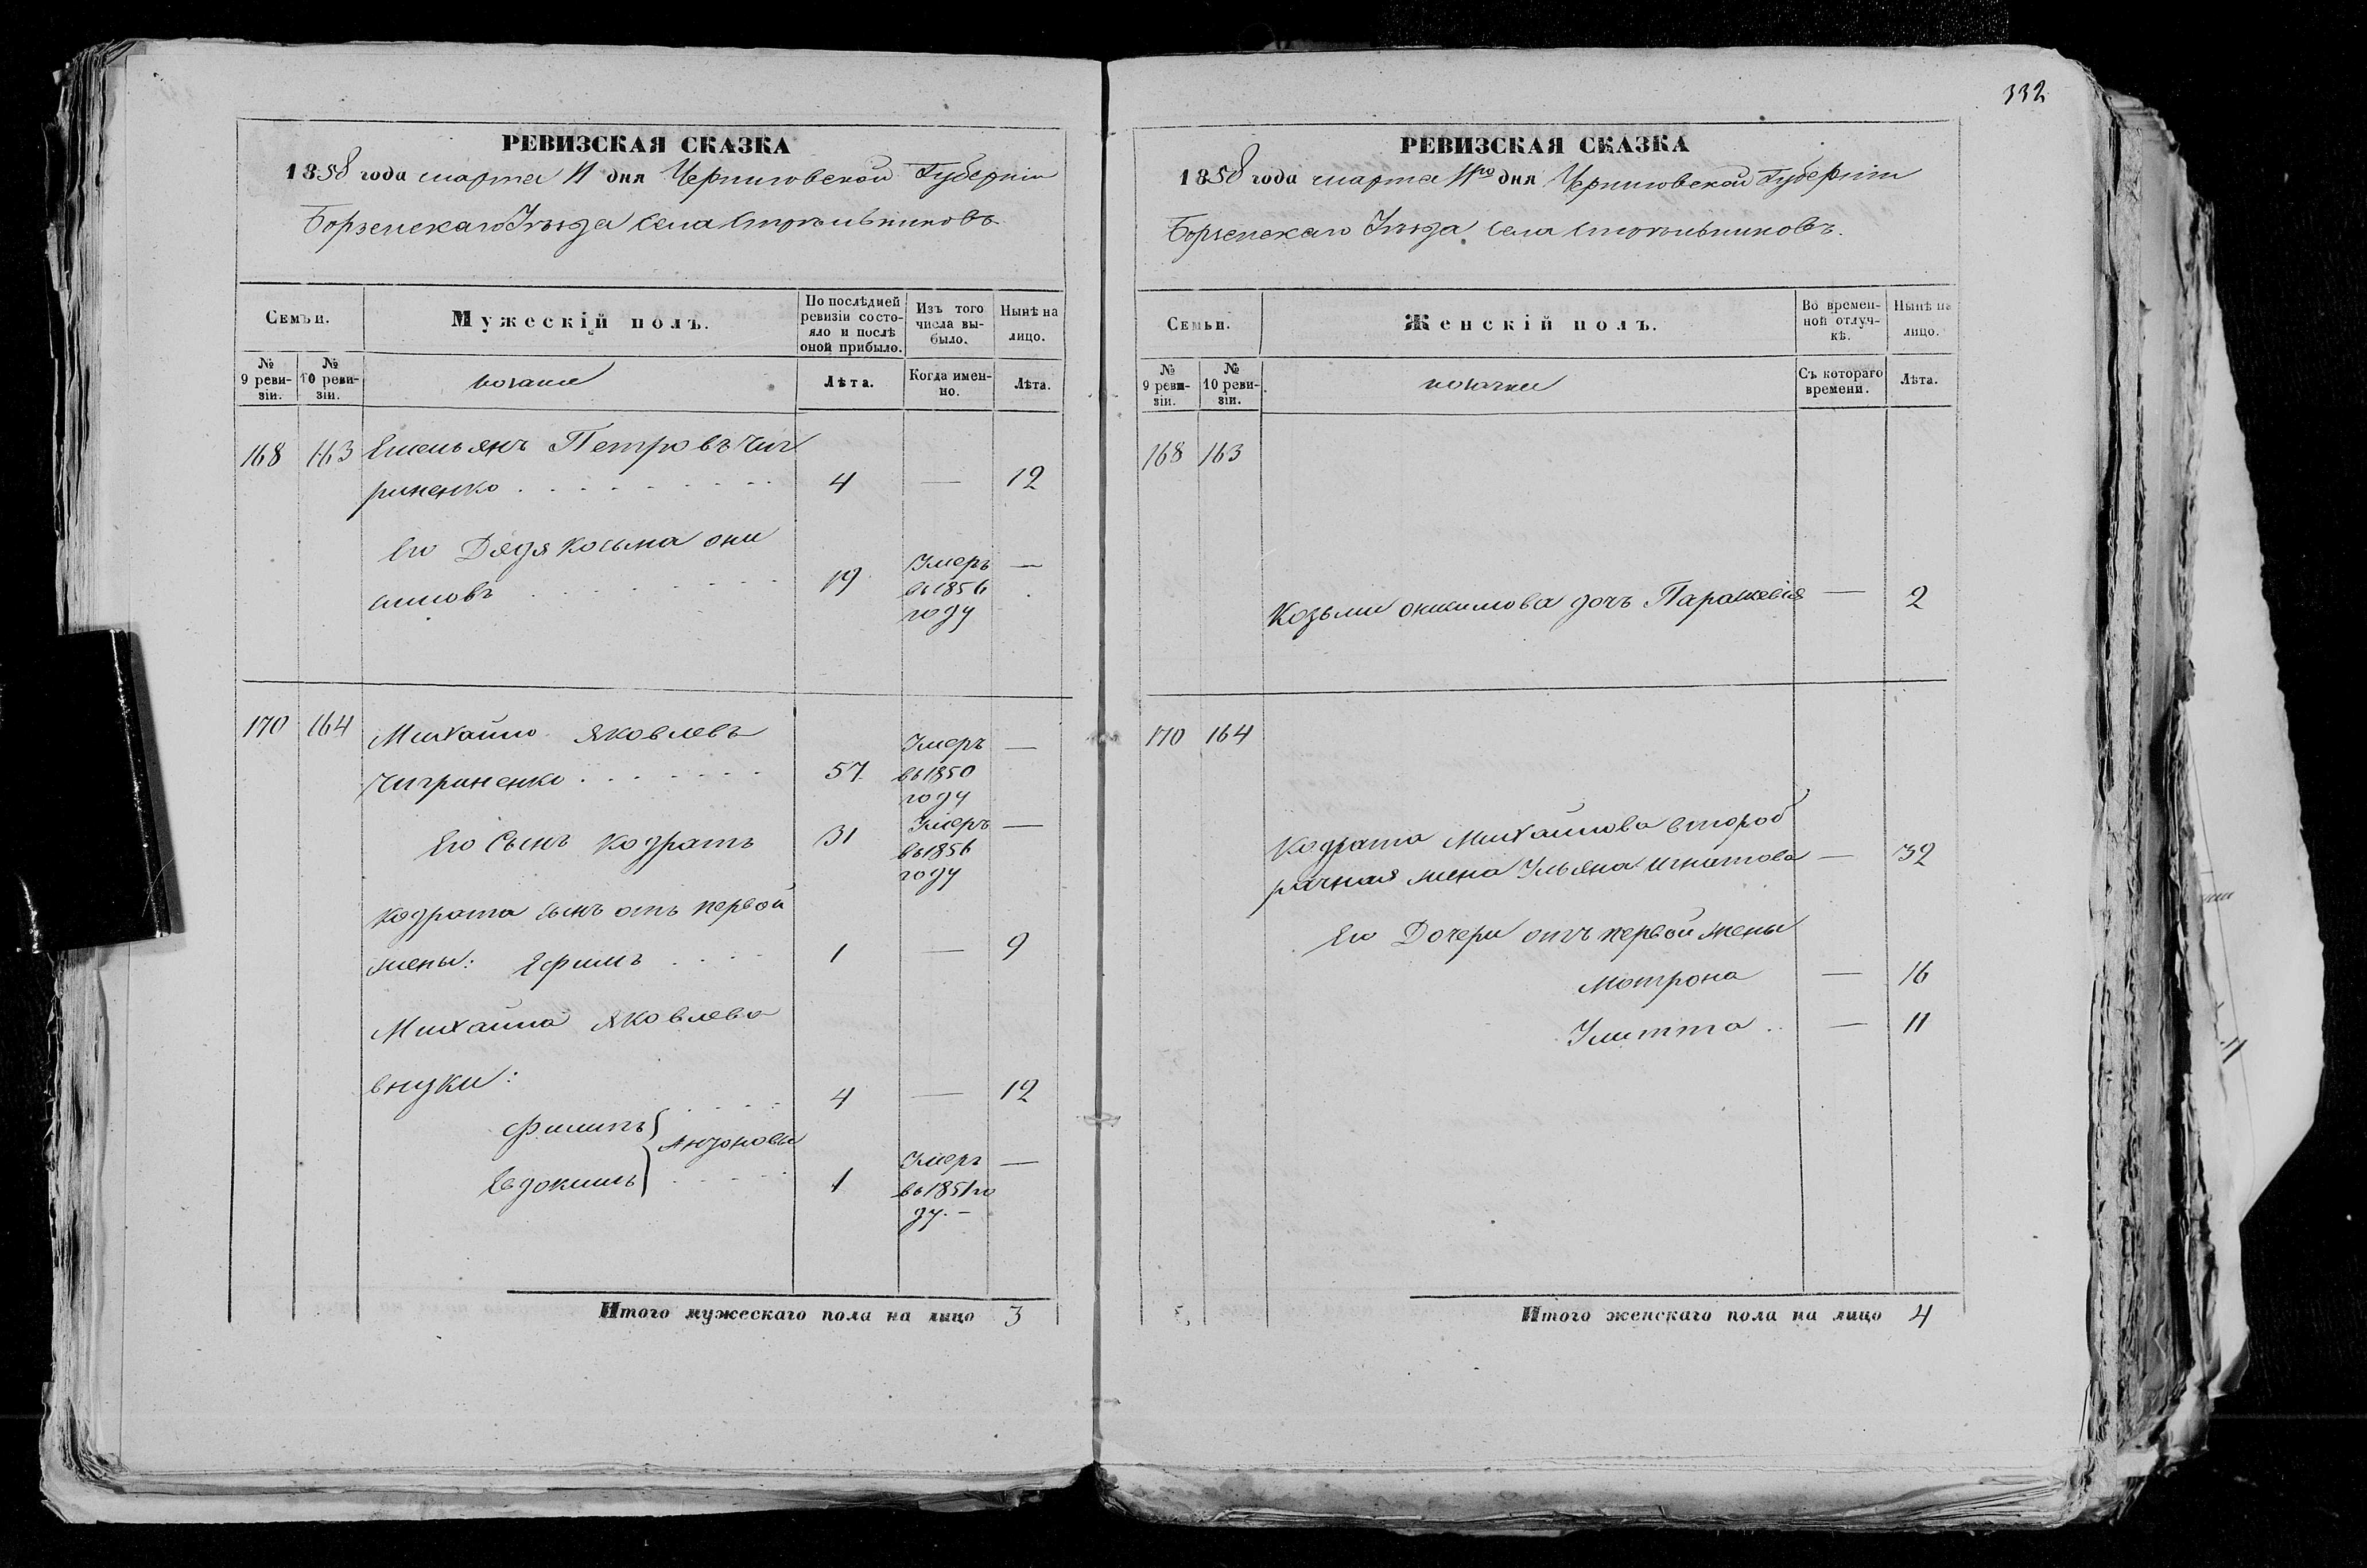 332
РЕВИЗСКАЯ СКАЗКА
1858 года марта 11 дня Черниговской Губерніи
Борзенскаго Уѣзда Села
Семьи.
Мужескій полъ.
По послѣдней ревизіи состояло и послѣ оной прибыло.
Изъ того числа выбыло.
Нынѣ на лицо.
№ 9 ревизіи.
№ 10 ревизіи.
козаки
Лѣта.
Когда именно.
Лѣта.
168 163 Емельянъ Петровъ Чиг
риненко . . . . . . . . . 4 — 12
Его Дядя Козьма они
симовъ . . . . . . . . 19 Умеръ въ 1856 году —
170 164 Михайло Яковлевъ
Чигриненко . . . . . . . 57 Умеръ въ 1850 году —
Его Сынъ Кодратъ 31 Умеръ въ 1856 году —
Кодрата сынъ отъ первой
жены: Ефимъ . . . . 1 — 9
Михайла Яковлева
внуки:
Филипъ } . . . . 4 — 12
Андроновы
Евдокимъ } . . . . 1 Умеръ въ 1851 го
ду. —
Итого мужескаго пола на лицо 3
РЕВИЗСКАЯ СКАЗКА
1858 года марта 11го дня Черниговской Губерніи
Борзенскаго Уѣзда Села
Семьи.
Женскій полъ.
Во временной отлучкѣ.
Нынѣ на лицо.
№ 9 ревизіи.
№ 10 ревизіи.
козачки
Съ котораго времени.
Лѣта.
168 163
Козьми онисимова дочь Параскевія — 2
170 164
Кодрата Михайлова второб
рачная жена Ульяна Игнатова — 32
Его Дочери отъ первой жены
Мотрона — 16
Улитта . . — 11
Итого женскаго пола на лицо 4